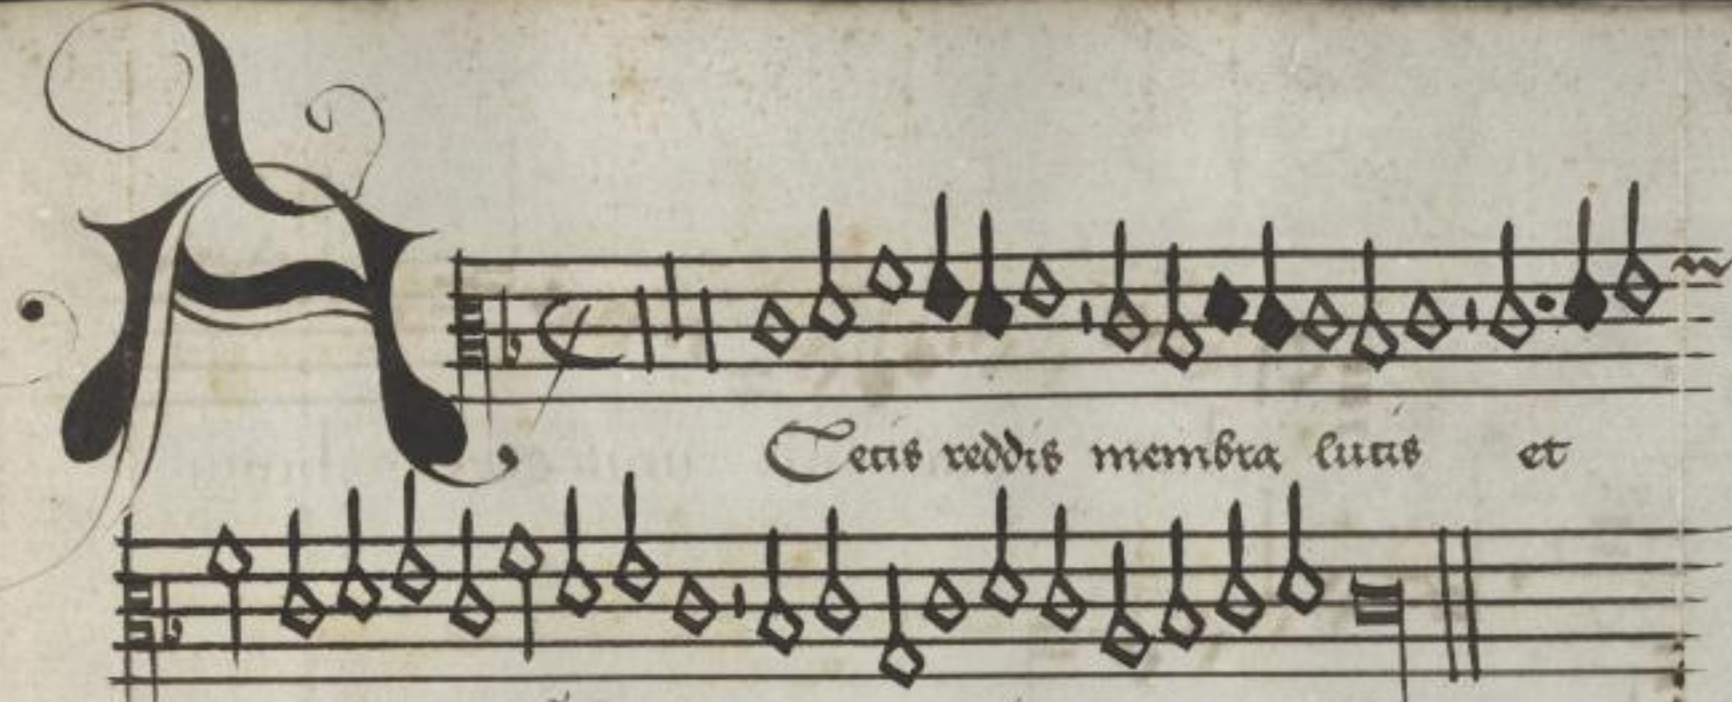 A
Cecis reddis membra lucis et